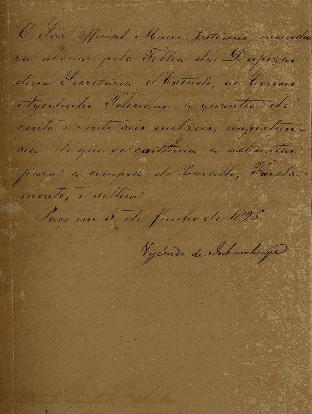 O Snr. Official Maior interino mandará
abonar pela Folha das Despezas
desta Secretaria d'Estado, ao Correio
Agostinho Feliciano a quantia de
cento e vinte seis mil reis, importan-
cia de que se continúa a adiantar
para a compra do Cavallo, Farda-
mento, e Sellim.
Paço em 5 de Junho de 1826
Visconde de Inhambupe